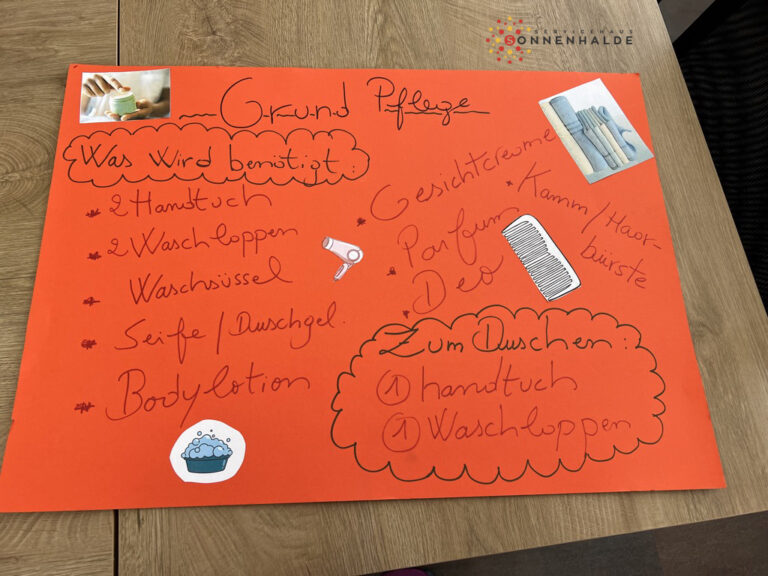 SERVICEHAUS
SONNENHALDE
Grund Pflege
Was wird benötigt:
* 2 Handtuch
* 2 Waschloppen
* Waschsüssel
* Seife / Duschgel.
* Bodylotion
* Gesichtcreume
* Parfum
* Deo
* Kamm / Haar-
bürste
Zum Duschen:
① handtuch
① Waschloppen